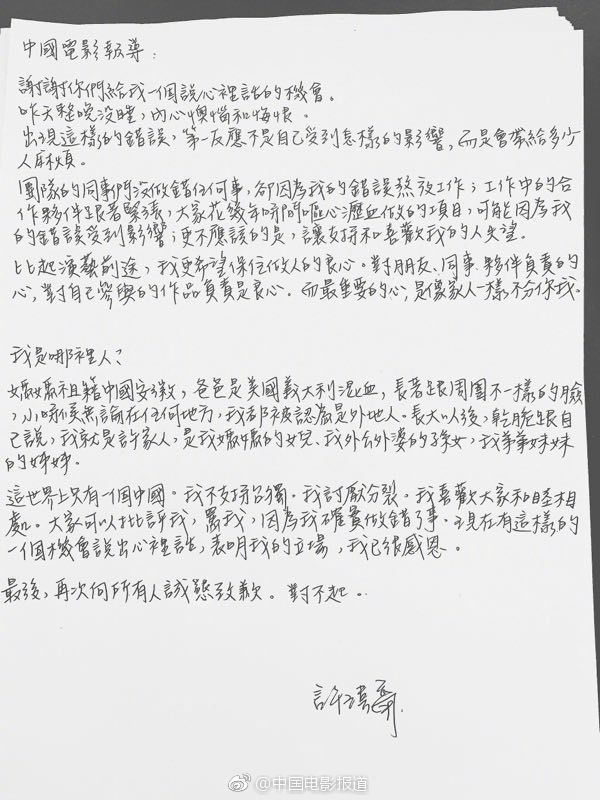 中國電影報導：
謝謝你們給我一個說心裡話的機會。
昨天整晚沒睡，內心懊惱和悔恨。
出現這樣的錯誤，第一反應不是自己受到怎樣的影響，而是會帶給多少
人麻煩。
團隊的同事們沒做錯任何事，卻因為我的錯誤熬夜工作；工作中的合
作夥伴跟著緊張，大家花幾年時間嘔心瀝血做的項目，可能因為我
的錯誤受到影響；更不應該的是，讓支持和喜歡我的人失望。
比起演藝前途，我更希望保住做人的良心。對朋友、同事、夥伴負責的
心，對自己參與的作品負責是良心。而最重要的心，是像家人一樣不分你我。
我是哪裡人？
媽媽祖籍中國安徽，爸爸是美國義大利混血，長著跟周圍不一樣的臉
，小時候無論在任何地方，我都被認為是外地人。長大以後，乾脆跟自
己說，我就是許家人，是我媽媽的女兒、我外公外婆的孫女，我弟弟妹妹
的姊姊。
這世界上只有一個中國。我不支持台獨。我討厭分裂。我喜歡大家和睦相
處。大家可以批評我，罵我，因為我不確實做錯了事。現在有這樣的
一個機會說出心裡話，表明我的立場，我已很感恩。
最後，再次向所有人誠懇致歉。對不起。
許瑋甯
@中国电影报道